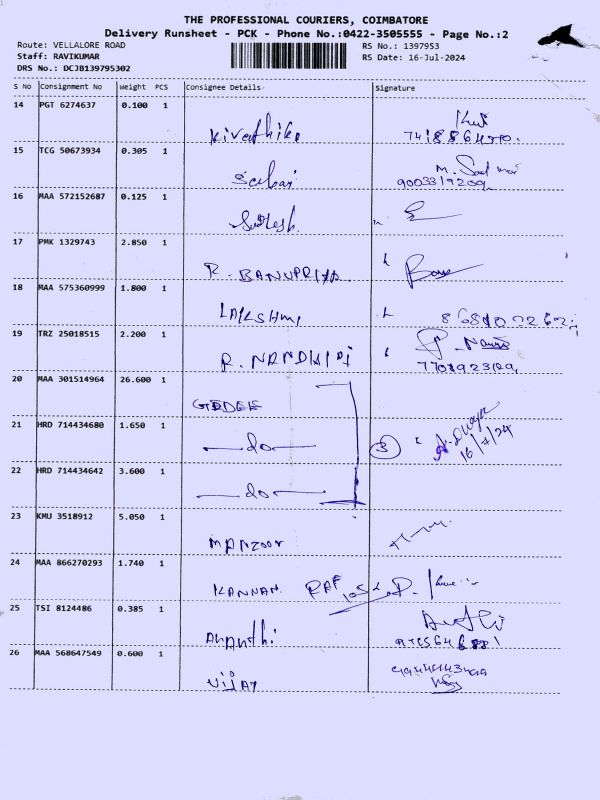 THE PROFESSIONAL COURIERS, COIMBATORE
Delivery Runsheet - PCK - Phone No.:0422-3505555 - Page No.:2
Route: VELLALORE ROAD RS No.: 1397953
Staff: RAVIKUMAR RS Date: 16-Jul-2024
DRS No.: DCJB139795302
S No Consignment No Weight PCS Consignee Details Signature
14 PGT 6274637 0.100 1
Kirthika
15 TCG 50673934 0.305 1
16 MAA 572152687 0.125 1
Suresh
17 PMK 1329743 2.850 1
R. BANUPRIYA
18 MAA 575360999 1.800 1
LAKSHMI
19 TRZ 25018515 2.200 1
R. NANDHINI
20 MAA 301514964 26.600 1
GEDEE
21 HRD 714434680 1.650 1
do 3 16/7/24
22 HRD 714434642 3.600 1
do
23 KMU 3518912 5.050 1
MANZOOR
24 MAA 866270293 1.740 1
KANNAN
25 TSI 8124486 0.385 1
Ananthi
26 MAA 568647549 0.600 1
VIJAY